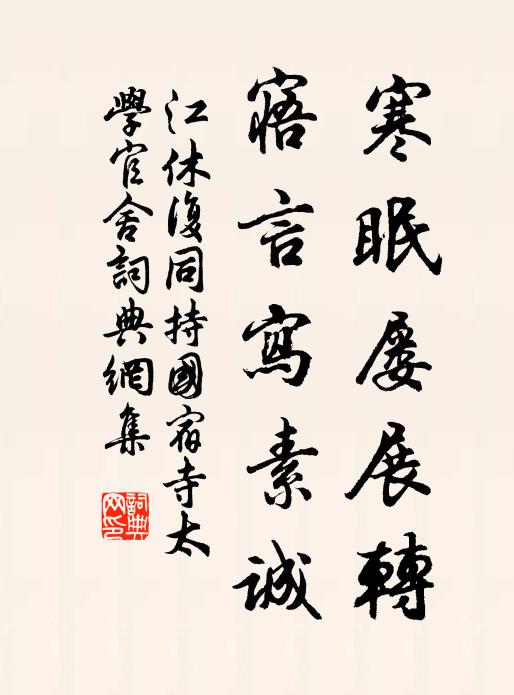 寒眠屡展轉
寤言寫素誠
江休復同持國宿寺太
學官舍詞典網集
詞典網印